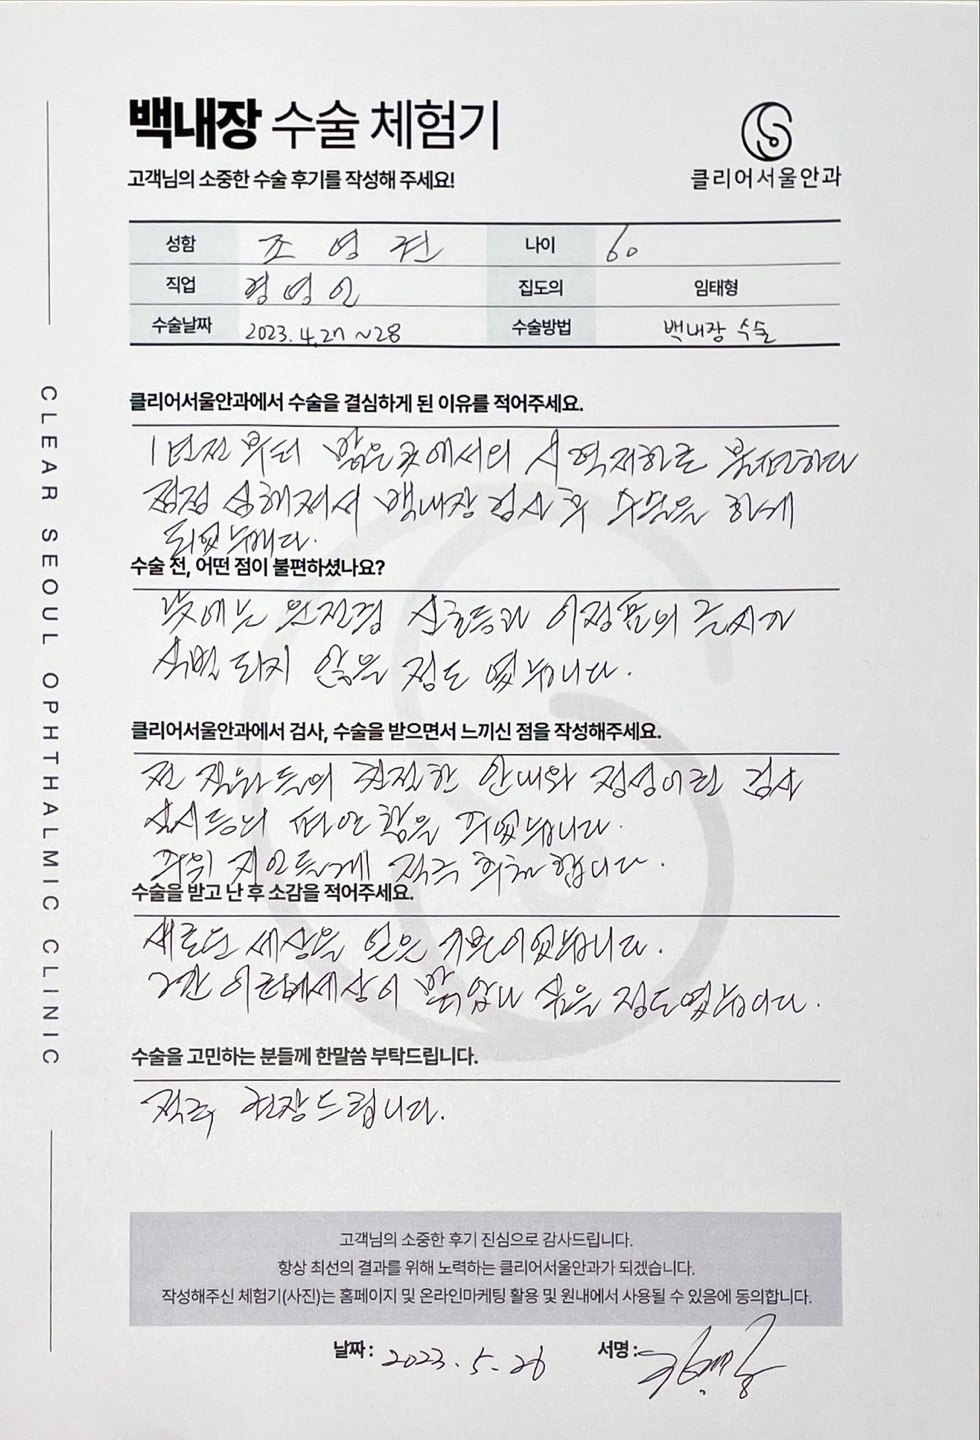 백내장 수술 체험기
고객님의 소중한 수술 후기를 작성해 주세요!
클리어서울안과
성함 조 영 나이 60
직업 집도의 임태형
수술날짜 2023.4.27 ~28 수술방법 백내장 수술
CLEAR SEOUL OPHTHALMIC CLINIC
클리어서울안과에서 수술을 결심하게 된 이유를 적어주세요.
1년전 부터 밝은 곳에서의 시력저하로 불편하다
점점 심해져서 백내장 검사 후 수술을 하게
되었습니다.
수술 전, 어떤 점이 불편하셨나요?
낮에는 운전중 신호등과 이정표의 글씨가
식별 되지 않을 정도 였습니다.
클리어서울안과에서 검사, 수술을 받으면서 느끼신 점을 작성해주세요.
전 직원들의 친절한 안내와 정성어린 검사
편안함을
주위 지인들에게 적극 추천 합니다.
수술을 받고 난 후 소감을 적어주세요.
새로운 세상을 얻은 기분이었습니다.
세상이 밝았나 싶을 정도였습니다.
수술을 고민하는 분들께 한말씀 부탁드립니다.
적극 권장드립니다.
고객님의 소중한 후기 진심으로 감사드립니다.
항상 최선의 결과를 위해 노력하는 클리어서울안과가 되겠습니다.
작성해주신 체험기(사진)는 홈페이지 및 온라인마케팅 활용 및 원내에서 사용될 수 있음에 동의합니다.
날짜 : 2023. 5. 26 서명 :